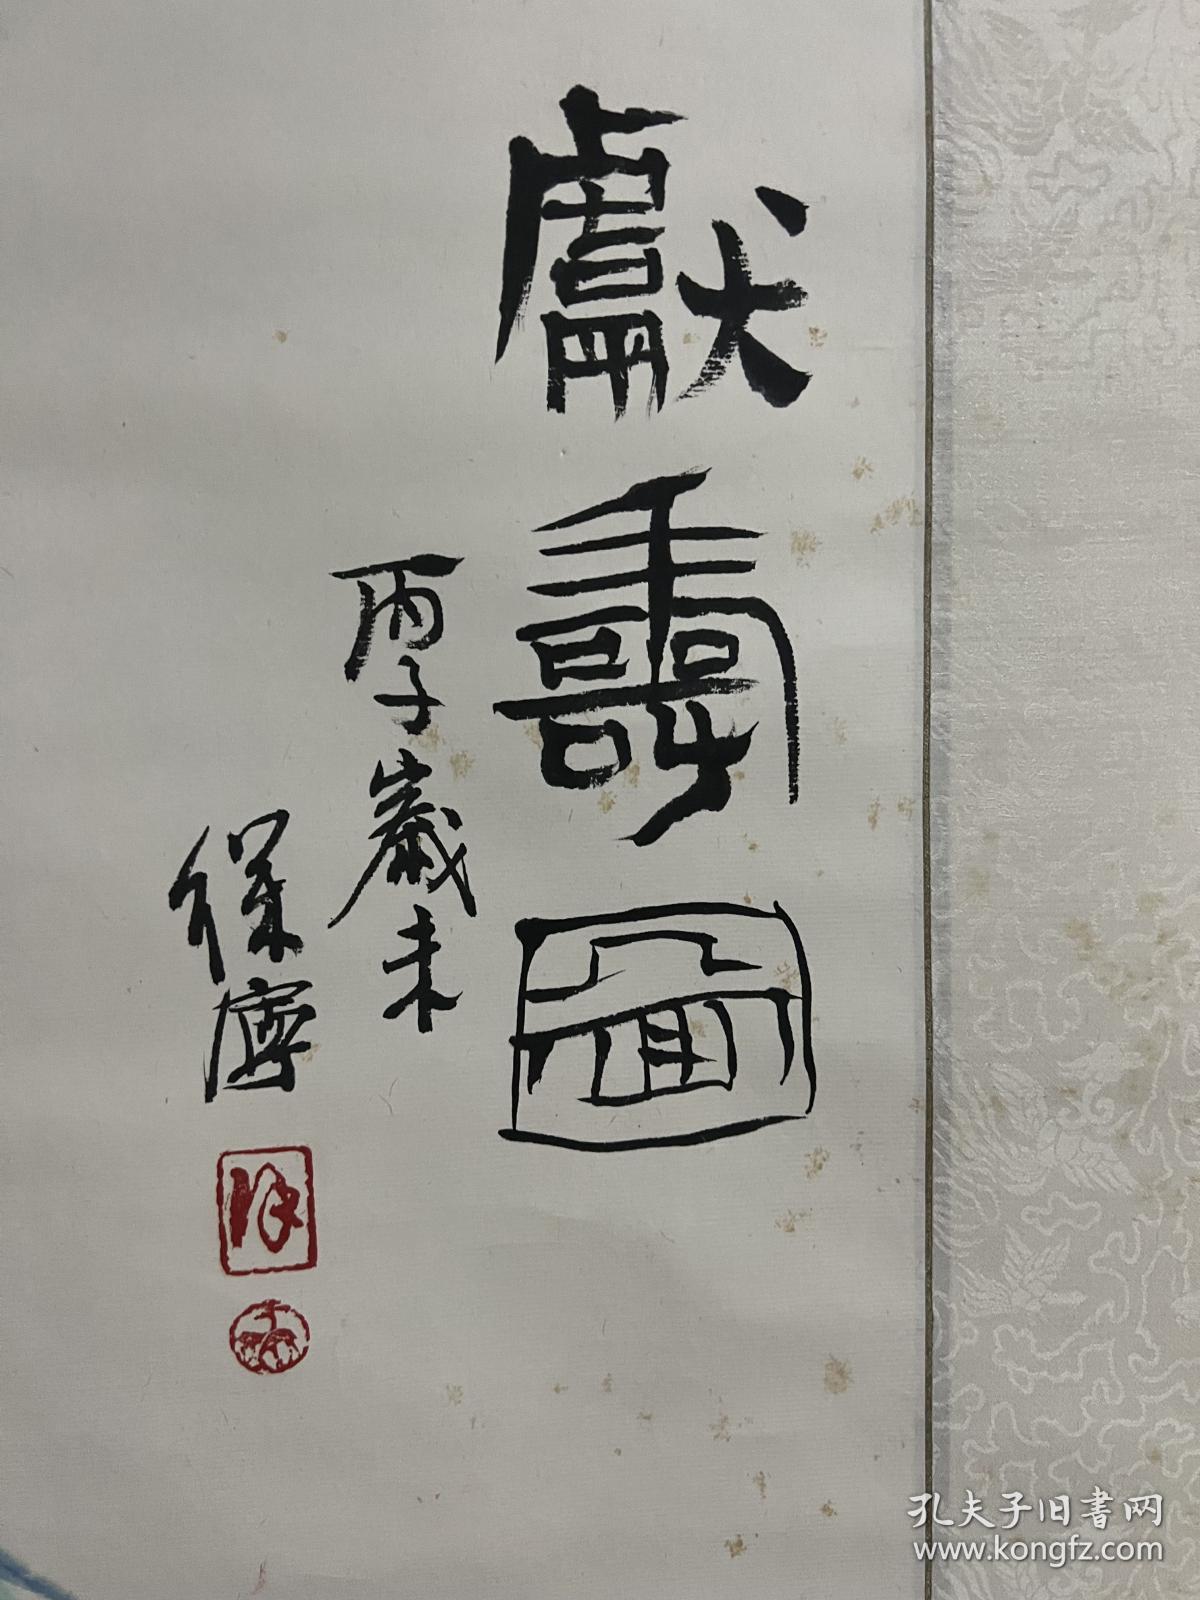 獻壽圖
丙子歲末
保寧
孔夫子旧书网
www.kongfz.com